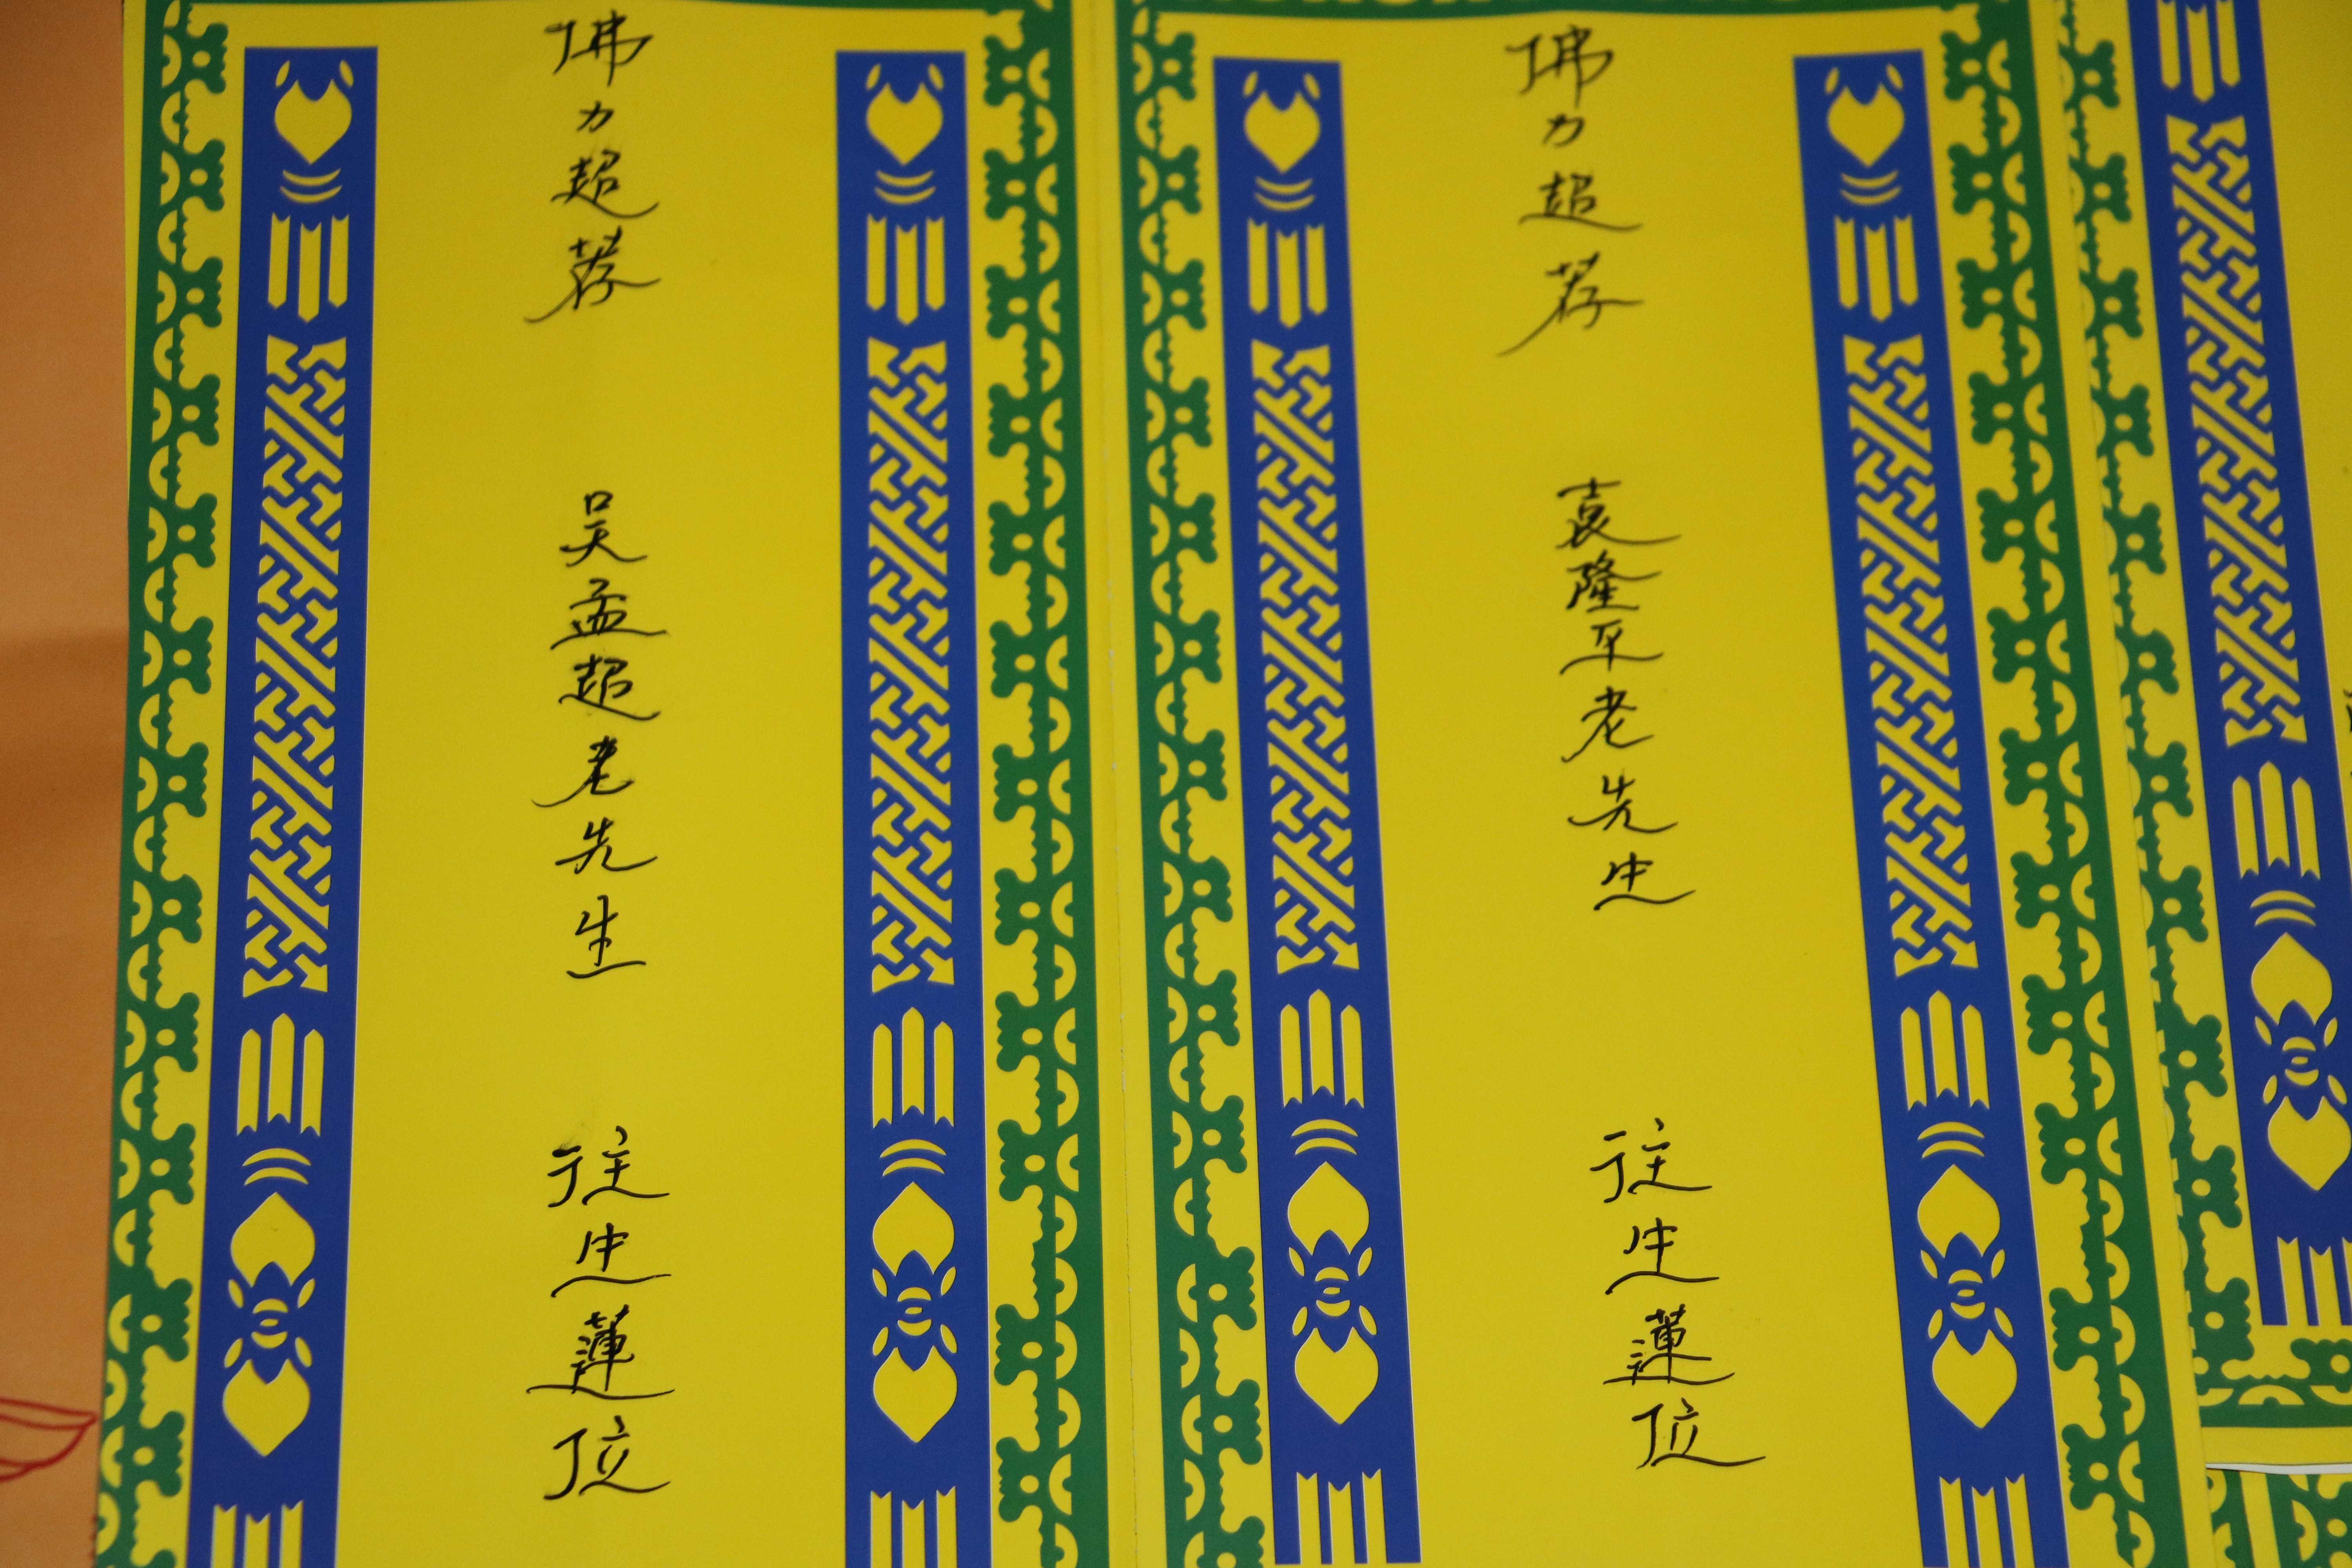 佛力超荐
吴孟超老先生
往生蓮位
佛力超荐
袁隆平老先生
往生蓮位